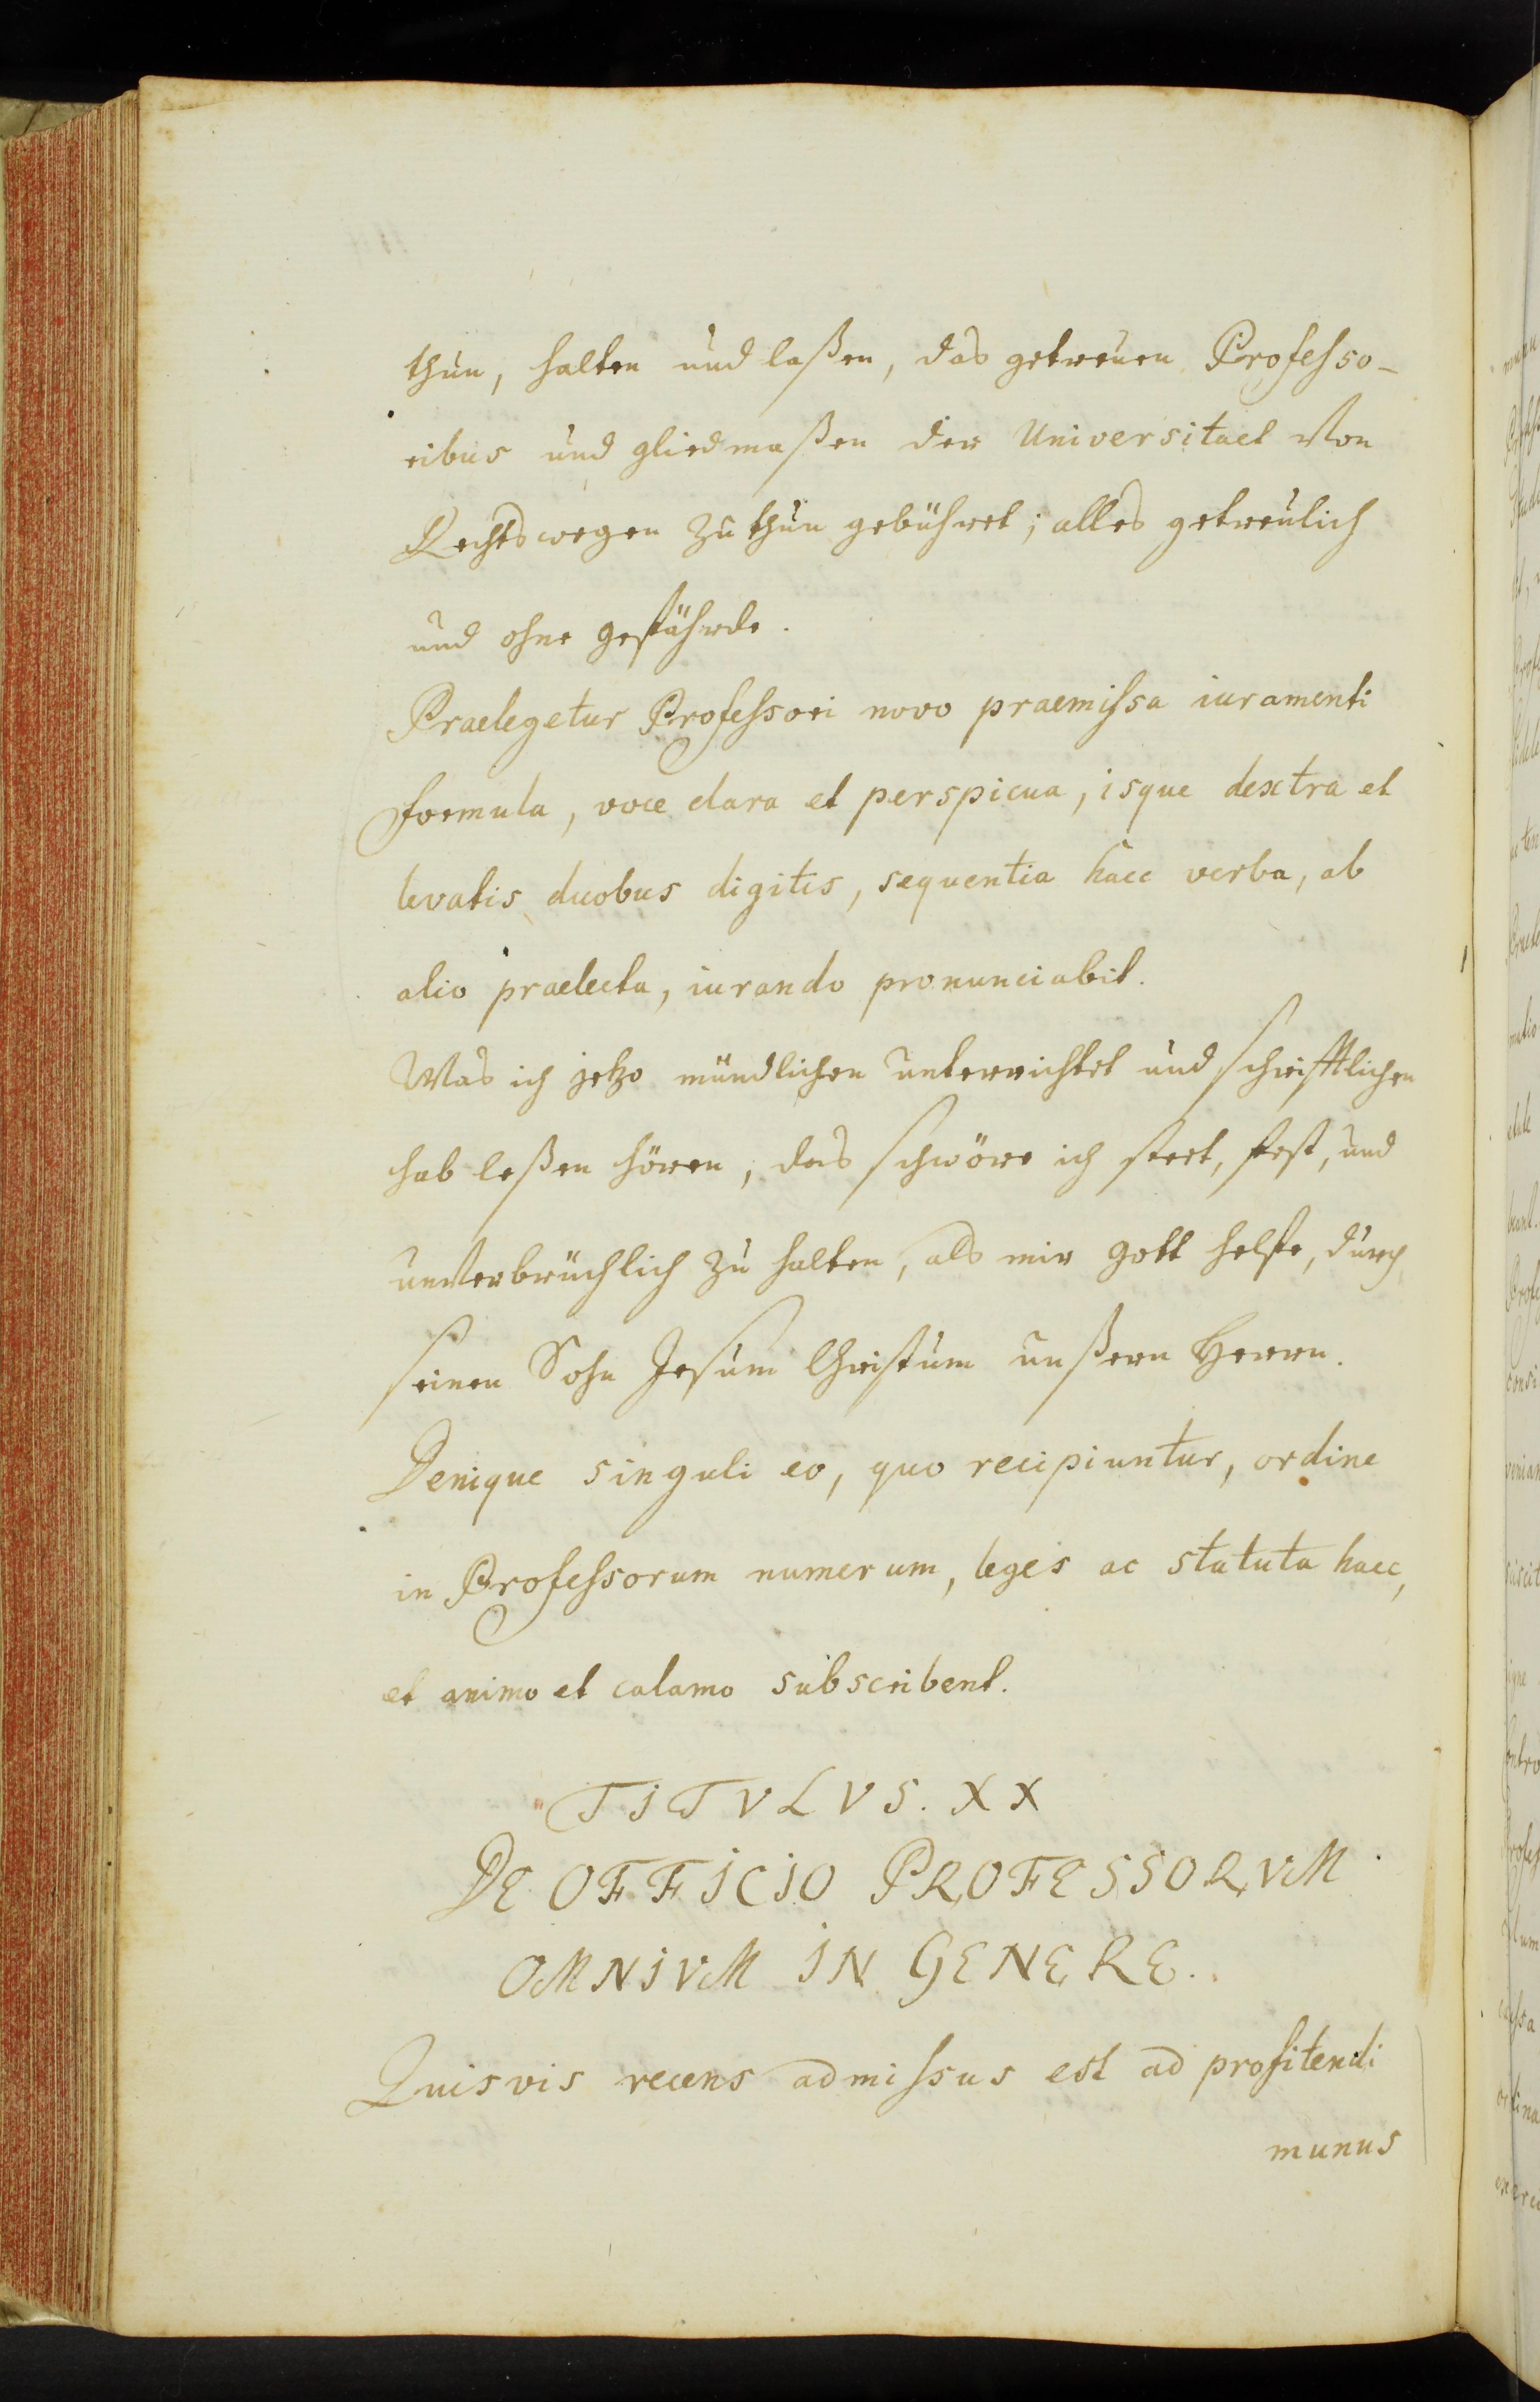 thun, halten und laßen, das getreuen Professo-
ribus und gliedmaßen der Universitaet Von
Rechtswegen zu thun gebühret; alles getreulich
und ohne gefährde.
Praelegetur Professori novo praemissa iuramenti
formula, voce clara et perspicua, isque dextra et
levatis duobus digitis, sequentia haec verba, ab
alio praelecta, iurando pronunciabit.
Was ich jetzo mündlichen unterrichtet und schrifftlichen
hab leßen hören, das schwöre ich steet, fest, und
unVerbrüchlich zu halten, als mir gott helffe, durch
seinen Sohn Jesum Christum unßern Herrn.
Denique singuli eo, quo recipiuntur, ordine
in Professorum numerum, leges ac statuta haec,
et animo et calamo subscribent.
TITVLVS. XX
DE OFFICIO PROFESSORVM
OMNIVM IN GENERE.
Quisvis recens admissus est ad profitendi
munus